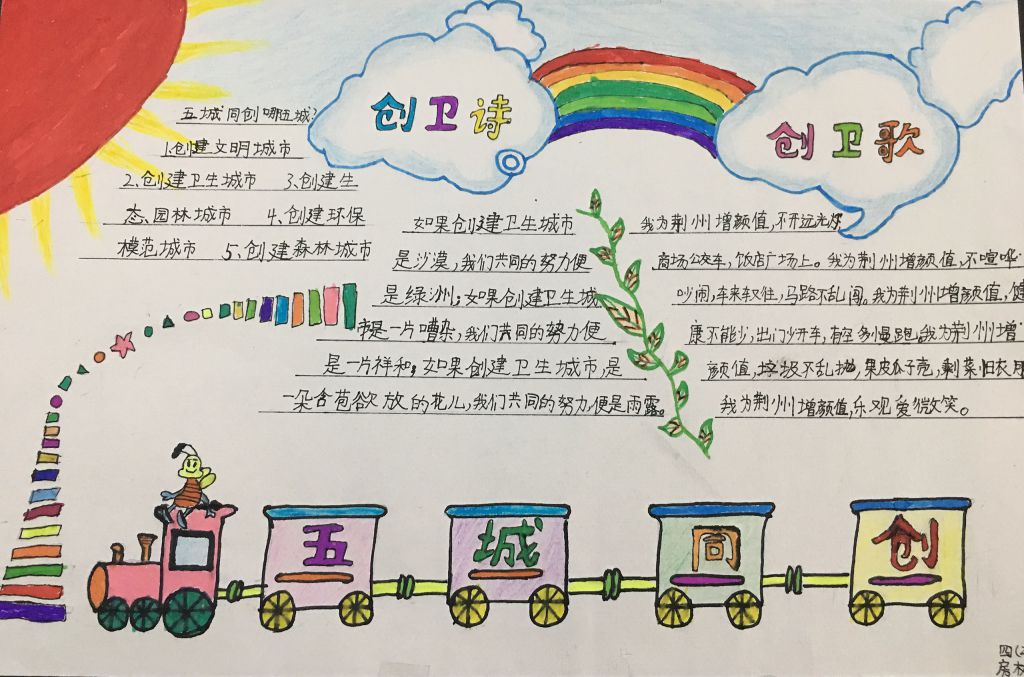 创卫诗
创卫歌
五城同创哪五城?
1.创建文明城市
2、创建卫生城市 3、创建生
态、园林城市 4、创建环保
模范城市 5、创建森林城市
如果创建卫生城市
是沙漠,我们共同的努力便
是绿洲;如果创建卫生城
市是一片嘈杂,我们共同的努力便
是一片祥和;如果创建卫生城市,是
一朵含苞欲放的花儿,我们共同的努力,便是雨露。
我为荆州增颜值,不开远光灯
商场公交车,饭店广场上。我为荆州增颜值,不喧哗
吵闹,车来车往,马路不乱闯。我为荆州增颜值,健
康不能少,出门少开车,有空多慢跑。我为荆州增
颜值,垃圾不乱抛,果皮瓜子壳,剩菜旧衣服
我为荆州增颜值,乐观爱微笑。
五城同创
四(2
房